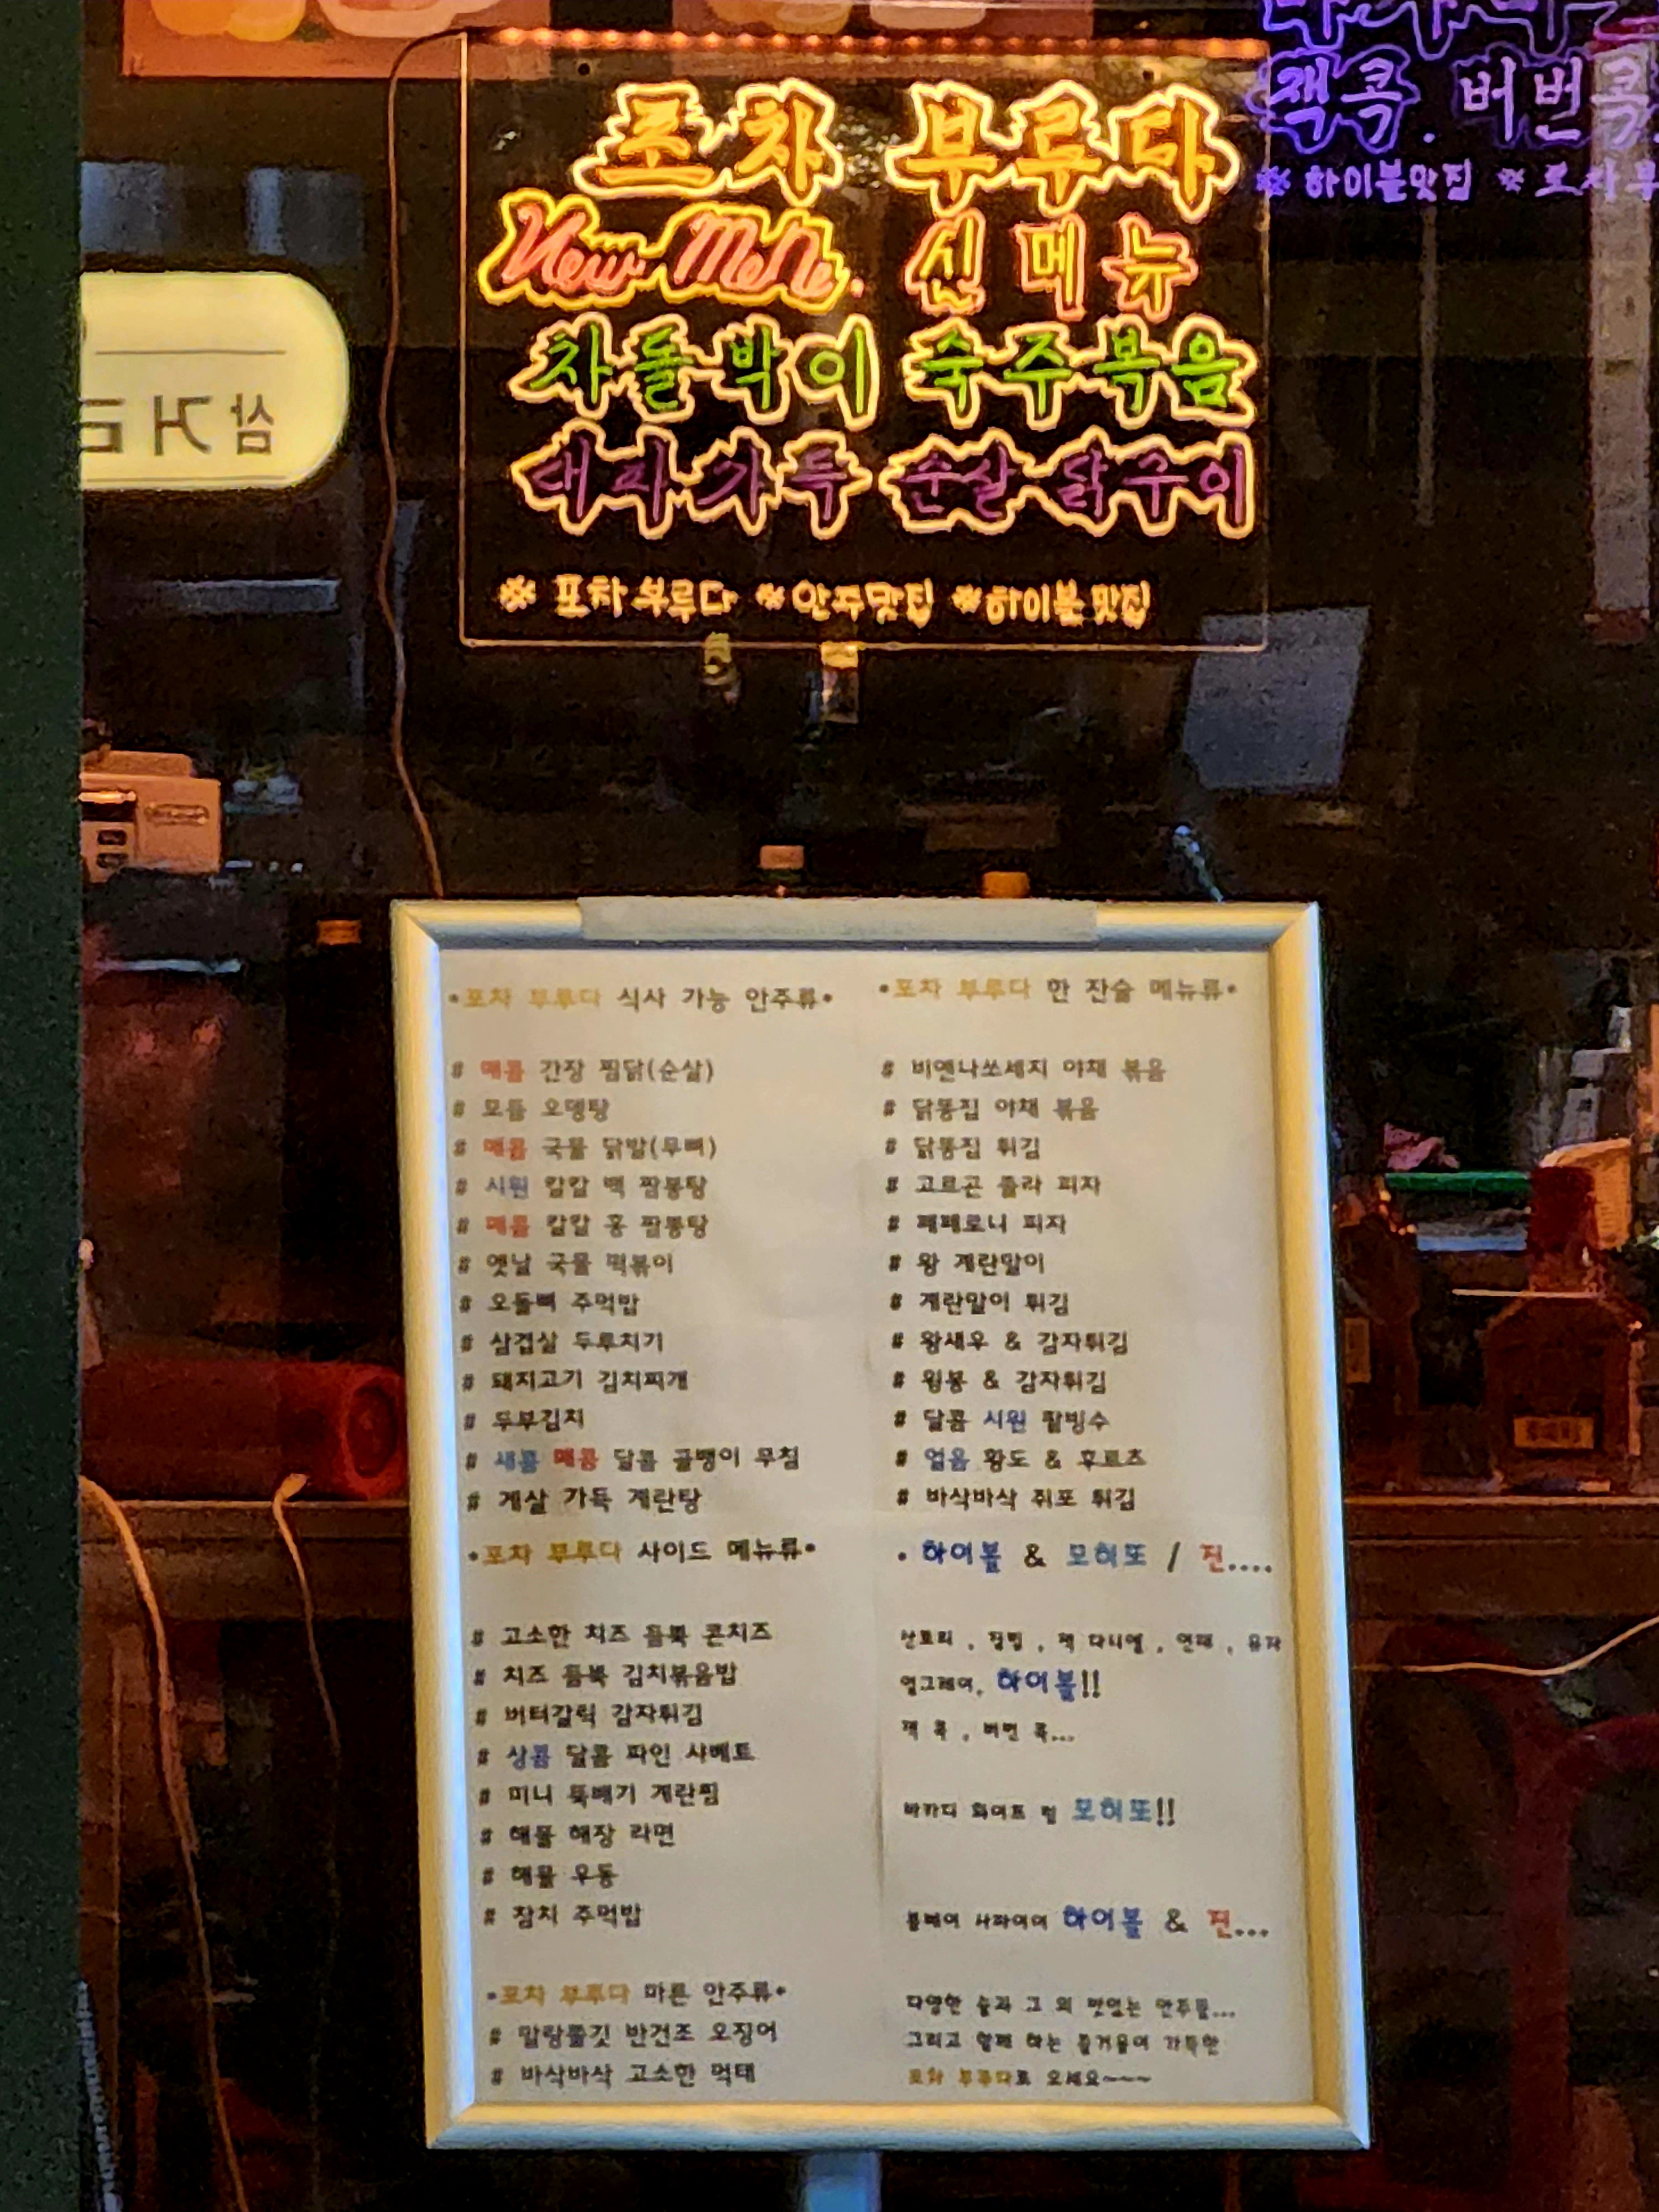 포차 부루다
New Menu. 신메뉴
차돌박이 숙주볶음
대파가득 순살 닭구이
※ 포차부루다 ※안주맛집 ※하이볼맛집
잭콕. 버번콕
※ 하이볼맛집 ※ 포차부
삼거리
•포차 부루다 식사 가능 안주류•
# 매콤 간장 찜닭(순살)
# 모듬 오뎅탕
# 매콤 국물 닭발(무뼈)
# 시원 칼칼 백 짬뽕탕
# 매콤 칼칼 홍 짬뽕탕
# 옛날 국물 떡볶이
# 오돌뼈 주먹밥
# 삼겹살 두루치기
# 돼지고기 김치찌개
# 두부김치
# 새콤 매콤 달콤 골뱅이 무침
# 게살 가득 계란탕
•포차 부루다 사이드 메뉴류•
# 고소한 치즈 듬뿍 콘치즈
# 치즈 듬뿍 김치볶음밥
# 버터갈릭 감자튀김
# 상콤 달콤 파인 샤베트
# 미니 뚝배기 계란찜
# 해물 해장 라면
# 해물 우동
# 참치 주먹밥
•포차 부루다 마른 안주류•
# 말랑쫄깃 반건조 오징어
# 바삭바삭 고소한 먹태
•포차 부루다 한 잔술 메뉴류•
# 비엔나쏘세지 야채 볶음
# 닭똥집 야채 볶음
# 닭똥집 튀김
# 고르곤 졸라 피자
# 페페로니 피자
# 왕 계란말이
# 계란말이 튀김
# 왕새우 & 감자튀김
# 윙봉 & 감자튀김
# 달콤 시원 팥빙수
# 얼음 황도 & 후르츠
# 바삭바삭 쥐포 튀김
• 하이볼 & 모히또 / 진....
산토리 , 짐빔 , 잭 다니엘 , 연태 , 유자
얼그레이, 하이볼!!
잭 콕 , 버번 콕...
바카디 화이트 럼 모히또!!
봄베이 사파이어 하이볼 & 진...
다양한 술과 그 외 맛있는 안주들...
그리고 함께 하는 즐거움이 가득한
포차 부루다로 오세요~~~